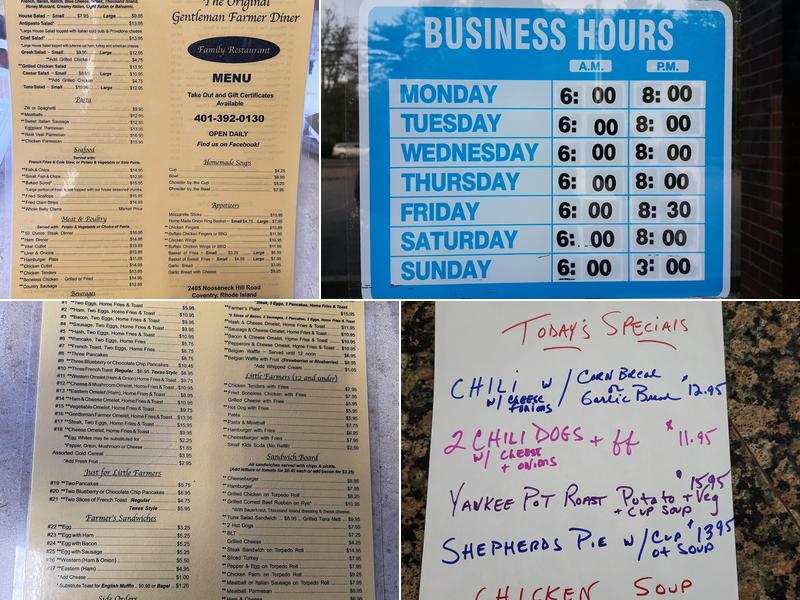 French, Italian, Ranch, Blue Cheese, Creek, Thousand Island,
Honey Mustard, Creamy Italian, Light Italian or Balsamic.
House Salad – Small $7.95 Large $9.95
Antipasto Salad* $13.95
*Large House Salad topped with Italian cold cuts & Provolone cheese.
Chef Salad* $13.95
Greek Salad – Small $9.95 Large $12.95
*Add Grilled Chicken $4.75
**Grilled Chicken Salad $13.95
Caesar Salad – Small Large $12.95
*Add Grilled Chicken $4.75
Tuna Salad – Small Large $12.95
Pasta
Ziti or Spaghetti $9.95
**Meatballs $12.95
**Sweet Italian Sausage $12.95
Eggplant Parmesan $13.95
**Real Veal Parmesan $15.95
**Chicken Parmesan $15.95
Seafood
Served with:
French Fries & Cole Slaw, or Potato & Vegetable or Side Pasta.
**Fish & Chips $14.95
**Small Fish & Chips $12.95
**Baked Scrod* $15.95
**Fried Scallops
**Fried Clam Strips $14.95
**Whole Belly Clams Market Price
Meat & Poultry
Served with: Potato & Vegetable or Choice of Pasta.
**10 Ounce Steak Dinner $16.95
**Ham Dinner $14.95
**Veal Cutlet $13.95
**Liver & Onions $13.95
**Hamburger Plate $11.95
**Chicken Cutlet $14.95
**Chicken Tenders $13.95
**Boneless Chicken – Grilled or Fried $14.95
**Country Sausage $12.95
Beverages
The Original
Gentleman Farmer Diner
Family Restaurant
MENU
Take Out and Gift Certificates
Available
401-392-0130
OPEN DAILY
Find us on Facebook!
Homemade Soups
Cup $4.25
Bowl $6.95
Chowder by the Cup $5.25
Chowder by the Bowl $7.95
Appetizers
Mozzarella Sticks $10.95
Home Made Onion Ring Basket – Small $4.75 Large $7.95
**Chicken Fingers $10.95
**Buffalo Chicken Fingers or BBQ $11.95
**Chicken Wings $10.95
**Buffalo Chicken Wings or BBQ $11.95
Basket of Fries – Small $3.25 Large $6.95
Basket of Sweet Fries – Small $4.95 Large $7.95
Garlic Bread $3.95
Garlic Bread with Cheese $5.25
2405 Nooseneck Hill Road
Coventry, Rhode Island
BUSINESS HOURS
A.M. P.M.
MONDAY 6: 00 8: 00
TUESDAY 6: 00 8: 00
WEDNESDAY 6: 00 8: 00
THURSDAY 6: 00 8: 00
FRIDAY 6: 00 8: 30
SATURDAY 6: 00 8: 00
SUNDAY 6: 00 3: 00
#1 **Two Eggs, Home Fries & Toast $5.95
#2 **Ham, Two Eggs, Home Fries & Toast $10.95
#3 **Bacon, Two Eggs, Home Fries & Toast
#4 **Sausage, Two Eggs, Home Fries & Toast
#5 **Hash, Two Eggs, Home Fries & Toast $10.95
#6 **Pancake, Two Eggs $6.75
#7 **French Toast, Two Eggs $6.75
#8 **Three Pancakes $8.75
#9 **Three Blueberry or Chocolate Chip Pancakes $10.45
#10 **Three French Toast Regular Texas Style $8.95
#11 **Western Omelet (Ham & Onion) Home Fries & Toast
#12 **Cheese & Mushroom Omelet, Home Fries & Toast
#13 **Eastern Omelet (Ham), Home Fries & Toast
#14 **Ham & Cheese Omelet, Home Fries & Toast $10.95
#15 **Vegetable Omelet, Home Fries & Toast $9.75
#16 **Gentleman Farmer Omelet, Home Fries & Toast $13.95
#17 **Steak, Two Eggs, Home Fries & Toast $15.95
#18 **Cheese Omelet, Home Fries & Toast $9.95
**Egg Whites may be substituted for $2.25
*Pepper, Onion, Mushroom or Cheese $1.65
Assorted Cold Cereal $3.95
*Add Fresh Fruit $2.95
Just for Little Farmers
#19 **Two Pancakes $5.75
#20 **Two Blueberry or Chocolate Chip Pancakes $6.95
#21 **Two Slices of French Toast Regular $4.75
Texas Style $5.95
Farmer's Sandwiches
#22 **Egg $3.25
#23 **Egg with Ham $5.25
#24 **Egg with Bacon $5.25
#25 **Egg with Sausage $5.25
#26 **Western (Ham & Onion) $5.50
#27 **Eastern (Ham) $4.95
*Add Cheese $1.00
* Substitute Toast for English Muffin .. $0.95 or Bagel .. $1.20
Side Orders
*Steak, 3 Eggs, 2 Pancakes, Home Fries & Toast
**Farmer's Plate* $15.95
**Hash & Cheese Omelet, Home Fries & Toast $11.95
**Sausage & Cheese Omelet, Home Fries & Toast $10.95
**Bacon & Cheese Omelet, Home Fries & Toast $10.95
**Pepperoni & Cheese Omelet, Home Fries & Toast
**Belgian Waffle – Served until 12 noon $6.95
**Belgian Waffle with Fruit (Strawberries or Blueberries)
**Add Whipped Cream $1.05
Little Farmers (12 and under)
**Chicken Tenders with Fries $7.95
**Fried Boneless Chicken with Fries $7.95
Grilled Cheese with Fries $5.95
**Hot Dog with Fries $5.95
Pasta $5.95
**Pasta & Meatball $7.75
**Hamburger with Fries $6.95
**Cheeseburger with Fries $7.95
Small Kids Soda (No Refill) $2.50
Sandwich Board
All sandwiches served with chips & pickle.
(Add lettuce or tomato for $0.45 each or add Bacon for $3.25)
**Cheeseburger
**Hamburger
**Grilled Chicken on Torpedo Roll
**Grilled Corned Beef Rueben on Rye*
*With Sauerkraut, Thousand Island dressing & Swiss cheese.
**Tuna Salad Sandwich $8.95 Grilled Tuna Melt $9.95
**2 Hot Dogs $7.95
**BLT $7.25
Grilled Cheese $4.25
**Steak Sandwich on Torpedo Roll $14.95
**Sliced Turkey $7.95
**Pepper & Egg on Torpedo Roll $7.95
**Chicken Parm on Torpedo Roll $9.25
**Meatball or Italian Sausage on Torpedo Roll
**Meatball Parmesan
TODAY'S SPECIALS
CHILI W/ CORN BREAD
W/ CHEESE + ONIONS or GARLIC BREAD $12.95
2 CHILI DOGS + ff $11.95
W/ CHEESE
+ ONIONS
YANKEE POT ROAST Potato + Veg $15.95
+ CUP SOUP
SHEPHERDS PIE W/ CUP of SOUP $13.95
CHICKEN SOUP